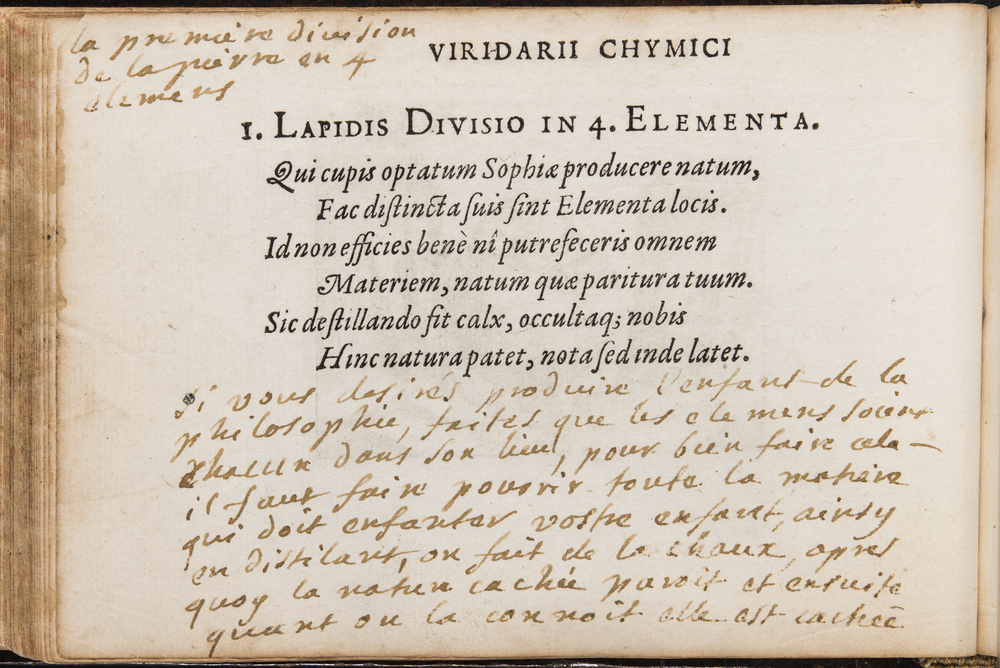 la premiere division
de la pierre en 4
elemens
VIRIDARII CHYMICI
1. LAPIDIS DIVISIO IN 4. ELEMENTA.
Qui cupis optatum Sophiæ producere natum,
Fac diſtincta ſuis ſint Elementa locis.
Id non efficies benè nî putrefeceris omnem
Materiem, natum quæ paritura tuum.
Sic deſtillando fit calx, occultaq; nobis
Hinc natura patet, nota ſed inde latet.
si vous desirés produire l'enfant de la
philosophie, faites que les elemens soient
chacun dans son lieu, pour bien faire cela
il faut faire pourrir toute la matiere
qui doit enfanter vostre enfant, ainsy
en distilant, on fait de la chaux, apres
quoy la nature cachée paroit et ensuite
quant on la connoit elle est cachée